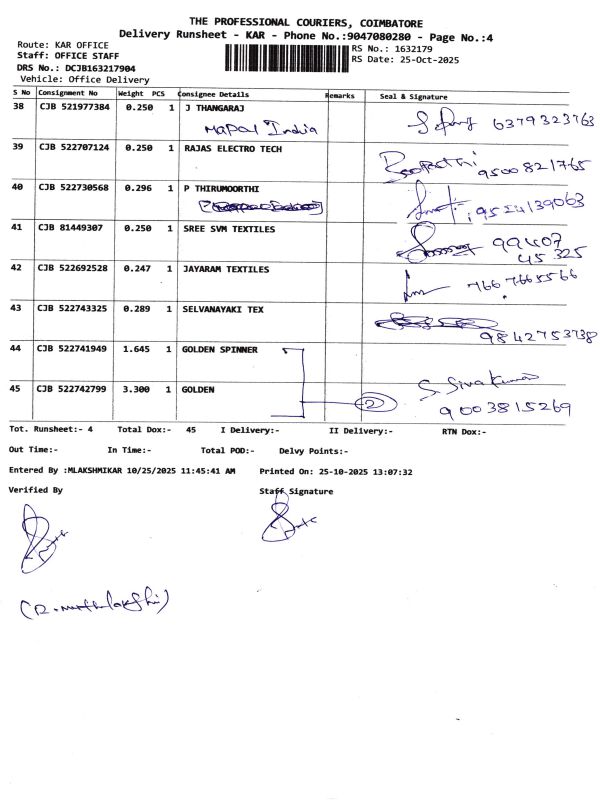 THE PROFESSIONAL COURIERS, COIMBATORE
Delivery Runsheet - KAR - Phone No.:9047080280 - Page No.:4
Route: KAR OFFICE
Staff: OFFICE STAFF
DRS No.: DCJB163217904
Vehicle: Office Delivery
RS No.: 1632179
RS Date: 25-Oct-2025
S No Consignment No Weight PCS Consignee Details Remarks Seal & Signature
38 CJB 521977384 0.250 1 J THANGARAJ
Mapal India
6379323763
39 CJB 522707124 0.250 1 RAJAS ELECTRO TECH
Boopathi
9500821765
40 CJB 522730568 0.296 1 P THIRUMOORTHI
9524139063
41 CJB 81449307 0.250 1 SREE SVM TEXTILES
99407
45325
42 CJB 522692528 0.247 1 JAYARAM TEXTILES
766 7665566
43 CJB 522743325 0.289 1 SELVANAYAKI TEX
9842753738
44 CJB 522741949 1.645 1 GOLDEN SPINNER
45 CJB 522742799 3.300 1 GOLDEN
2
S. Sivakumar
9003815269
Tot. Runsheet:- 4 Total Dox:- 45 I Delivery:- II Delivery:- RTN Dox:-
Out Time:- In Time:- Total POD:- Delvy Points:-
Entered By :MLAKSHMIKAR 10/25/2025 11:45:41 AM Printed On: 25-10-2025 13:07:32
Verified By Staff Signature